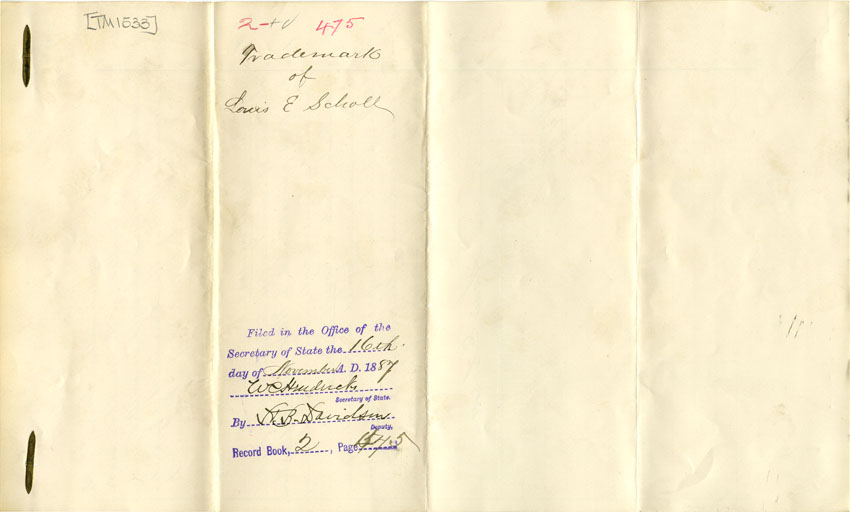 [TM1533]
475
Trademark
of
Louis E Scholl
Filed in the Office of the
Secretary of State the 16th
day of November A. D. 1887
Secretary of State.
By Davidson
Deputy,
Record Book, 2, Page